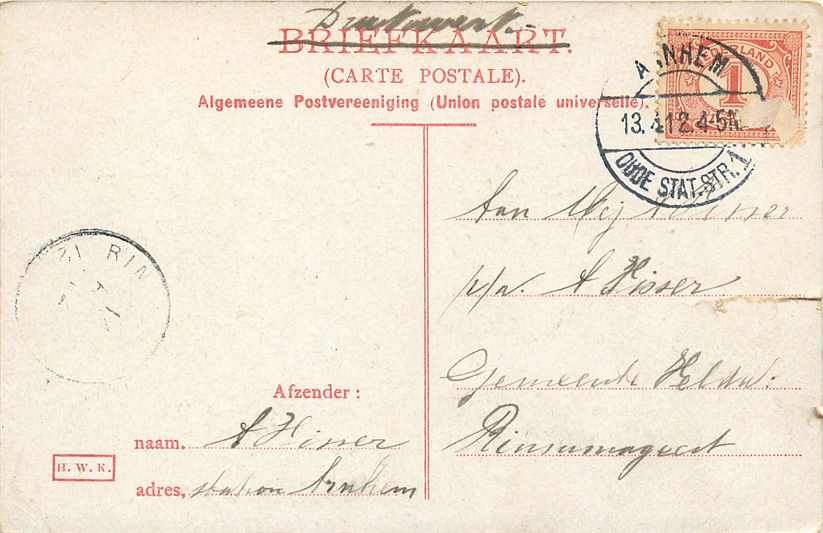 Drukwerk.
BRIEFKAART.
(CARTE POSTALE).
Algemeene Postvereeniging (Union postale universelle).
NEDERLAND
1
ARNHEM
13.4.12.4-5N
OUDE STAT.STR.1
Aan Mej A Visser
p/a. A Visser
Gemeente Veldw:
Rinsumageest
ZI RIN
Afzender:
naam. A Visser
adres, station Arnhem
H. W. K.